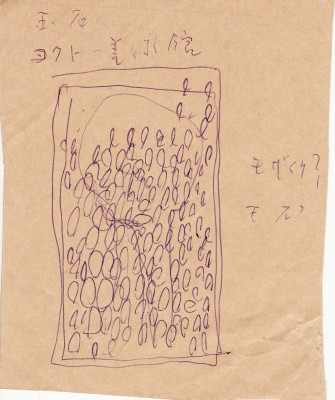 玉石
コクトー美術館
モザイク?
玉石